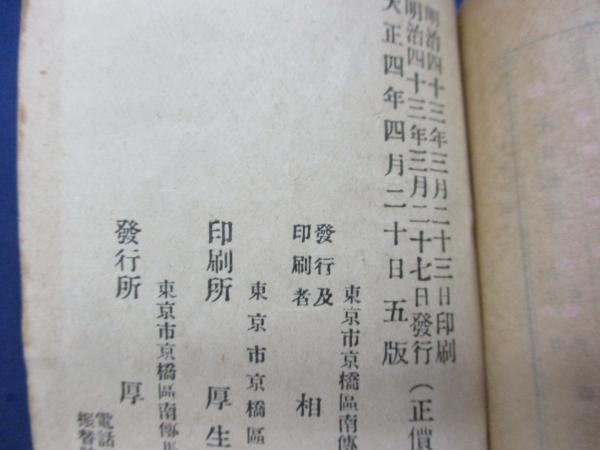 明治四十三年三月二十三日印刷
明治四十三年三月二十七日發行(正價
大正四年四月二十日五版
東京市京橋區南傳
發行及
印刷者
相
東京市京橋區
印刷所 厚生
東京市京橋區南傳馬
發行所 厚
電話
振替